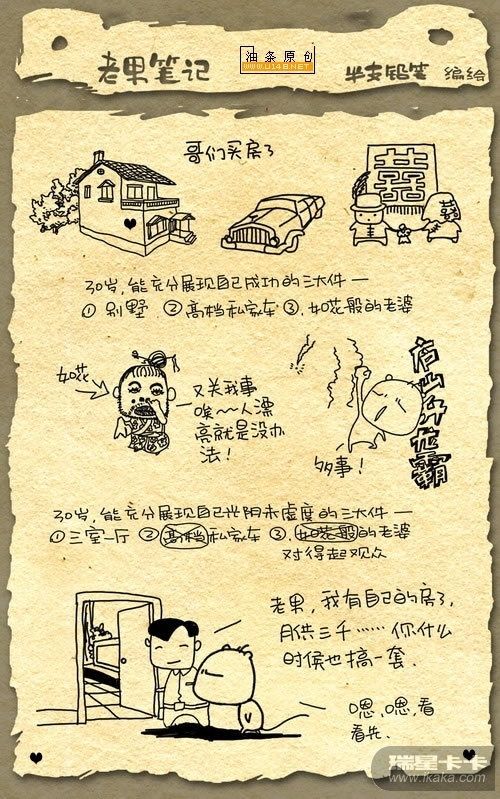 老果笔记
油条原创
WWW.U148.NET
半支铅笔 编绘
哥们买房了
30岁,能充分展现自己成功的三大件—
① 别墅 ②高档私家车 ③.如花般的老婆
如花
又关我事
唉~~人漂
亮就是没办
法!
庐山升龙霸
多事!
30岁,能充分展现自己光阴未虚度的三大件—
①三室一厅 ②高档私家车 ③.如花般的老婆
对得起观众
老果,我有自己的房了,
月供三千……你什么
时候也搞一套.
嗯、嗯,看
看先.
瑞星卡卡
www.ikaka.com